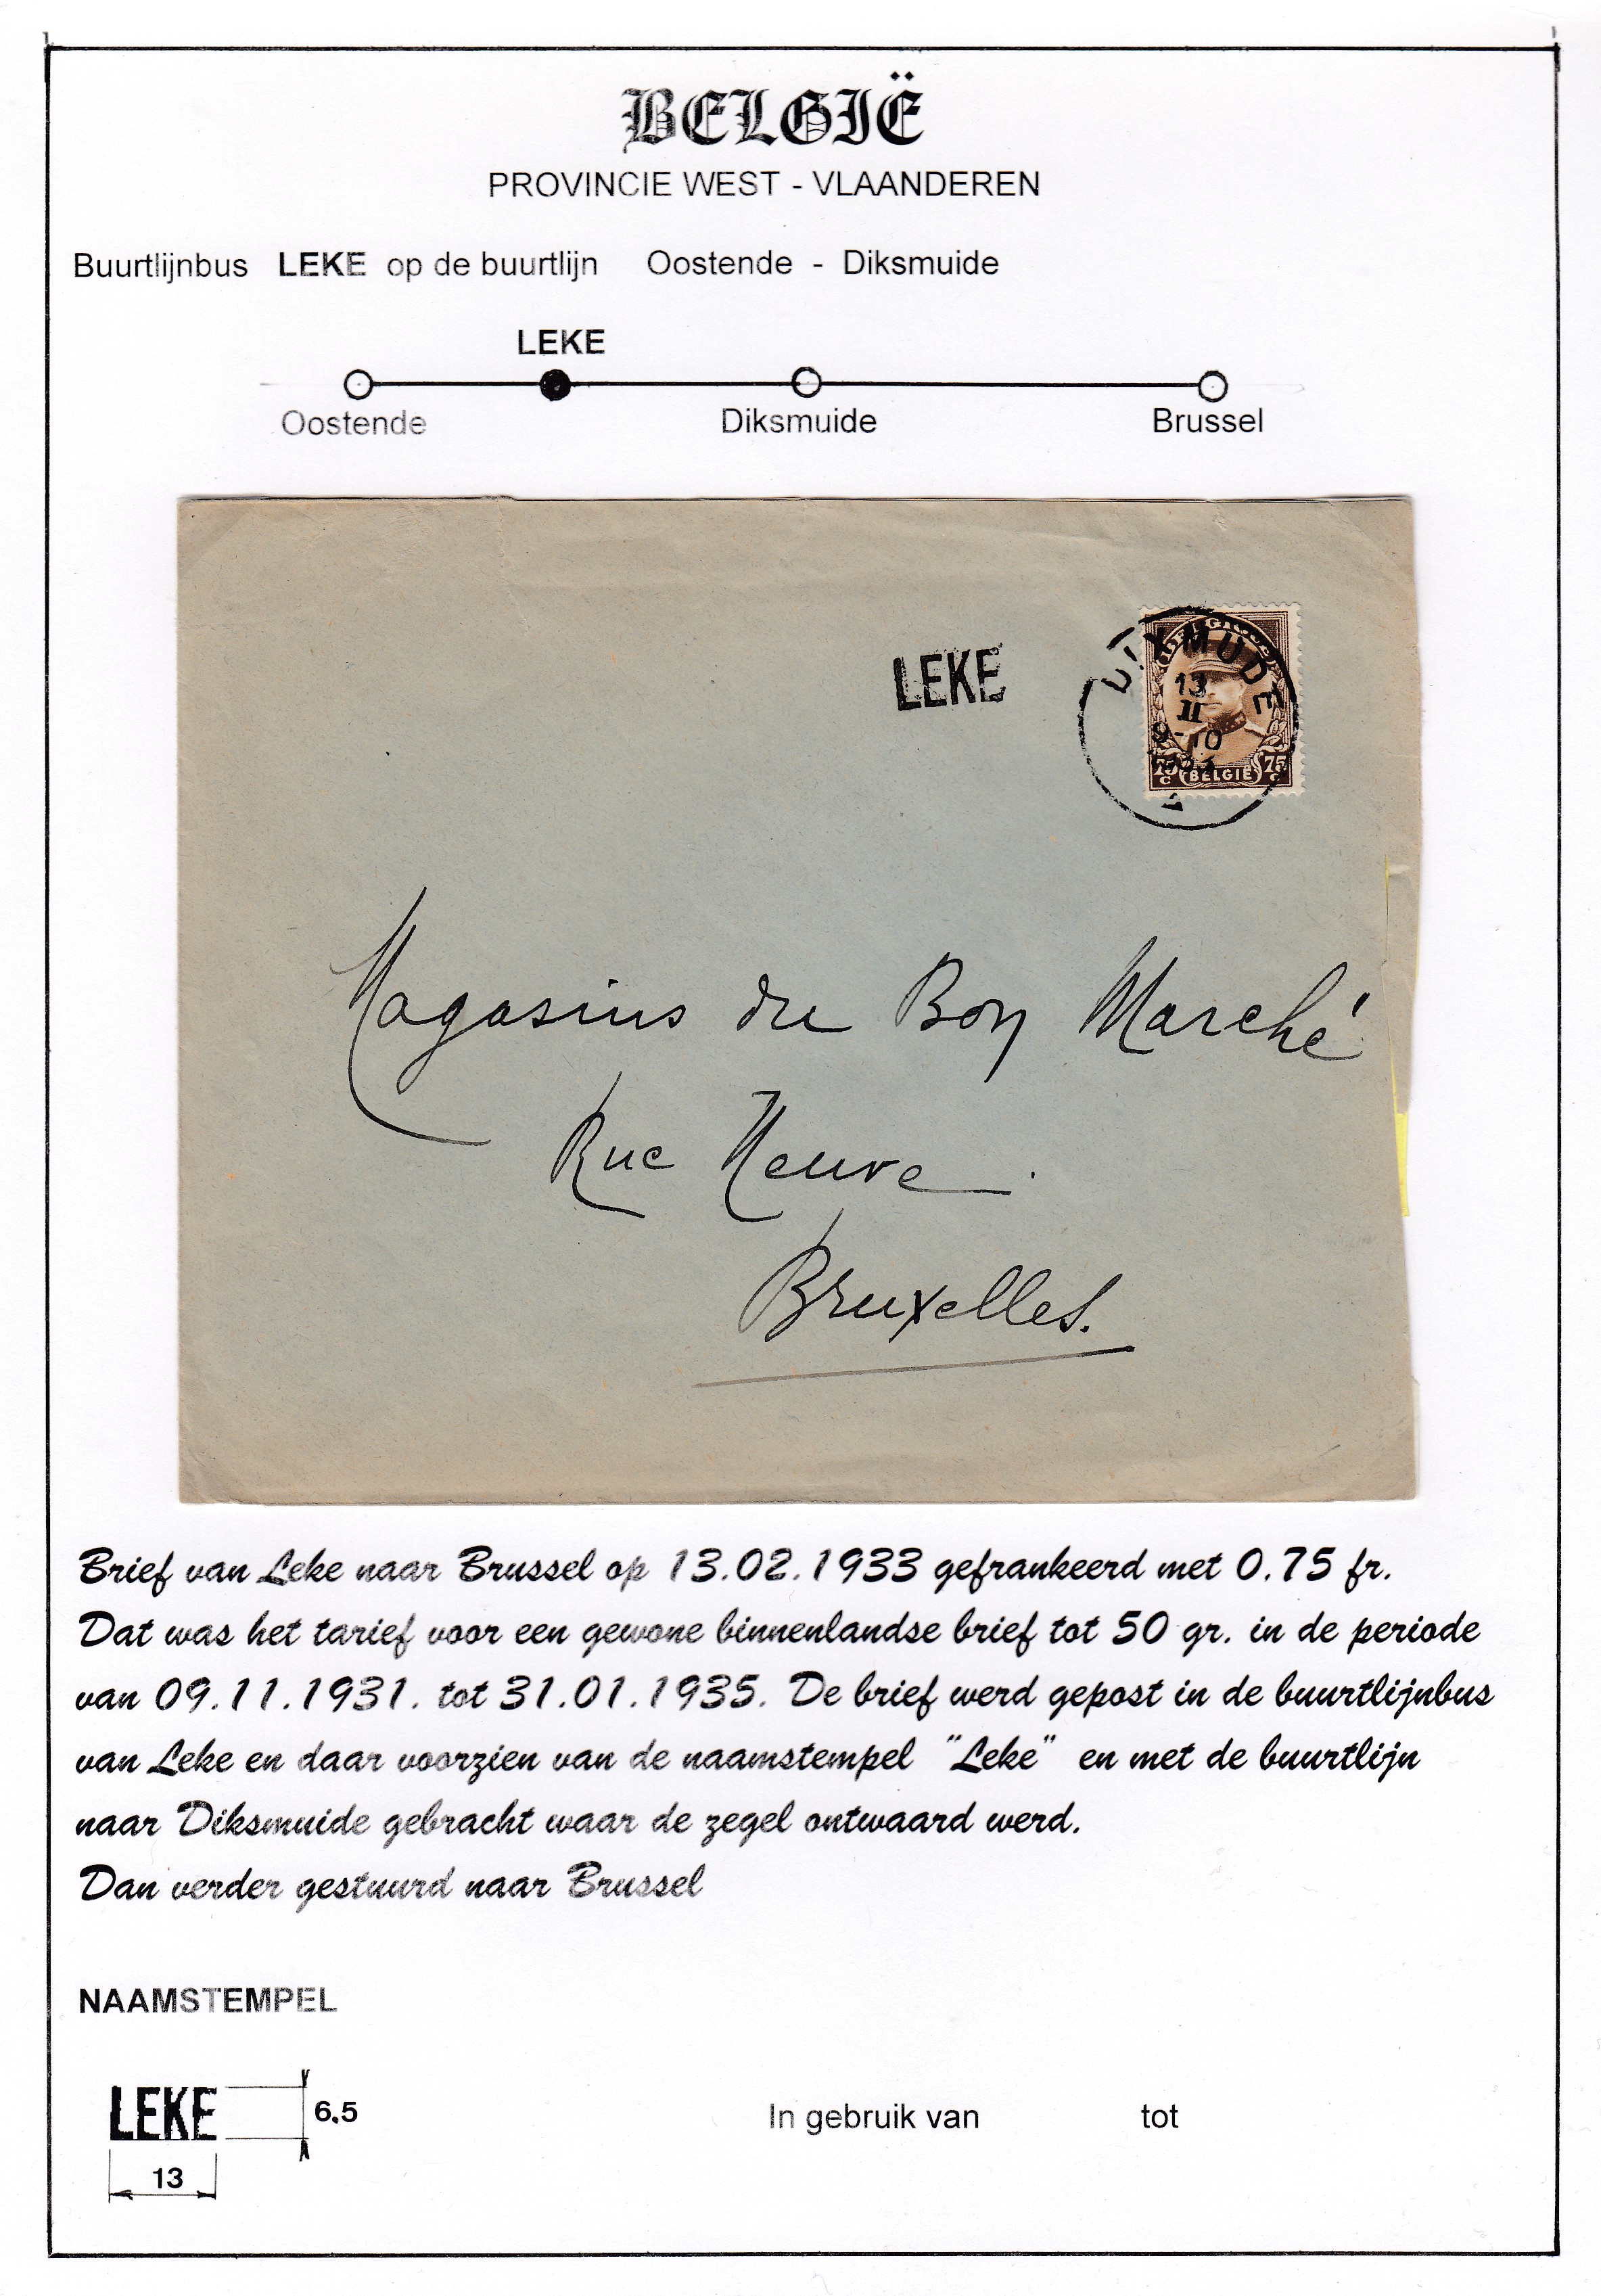 BELGIË
PROVINCIE WEST - VLAANDEREN
Buurtlijnbus LEKE op de buurtlijn Oostende - Diksmuide
LEKE
Oostende Diksmuide Brussel
LEKE
DIXMUDE
13
II
9-10
1933
75 C BELGIË 75 C
Magasins du Bon Marché
Rue Neuve.
Bruxelles.
Brief van Leke naar Brussel op 13.02.1933 gefrankeerd met 0.75 fr.
Dat was het tarief voor een gewone binnenlandse brief tot 50 gr. in de periode
van 09.11.1931. tot 31.01.1935. De brief werd gepost in de buurtlijnbus
van Leke en daar voorzien van de naamstempel "Leke" en met de buurtlijn
naar Diksmuide gebracht waar de zegel ontwaard werd.
Dan verder gestuurd naar Brussel
NAAMSTEMPEL
LEKE 6.5
13
In gebruik van tot